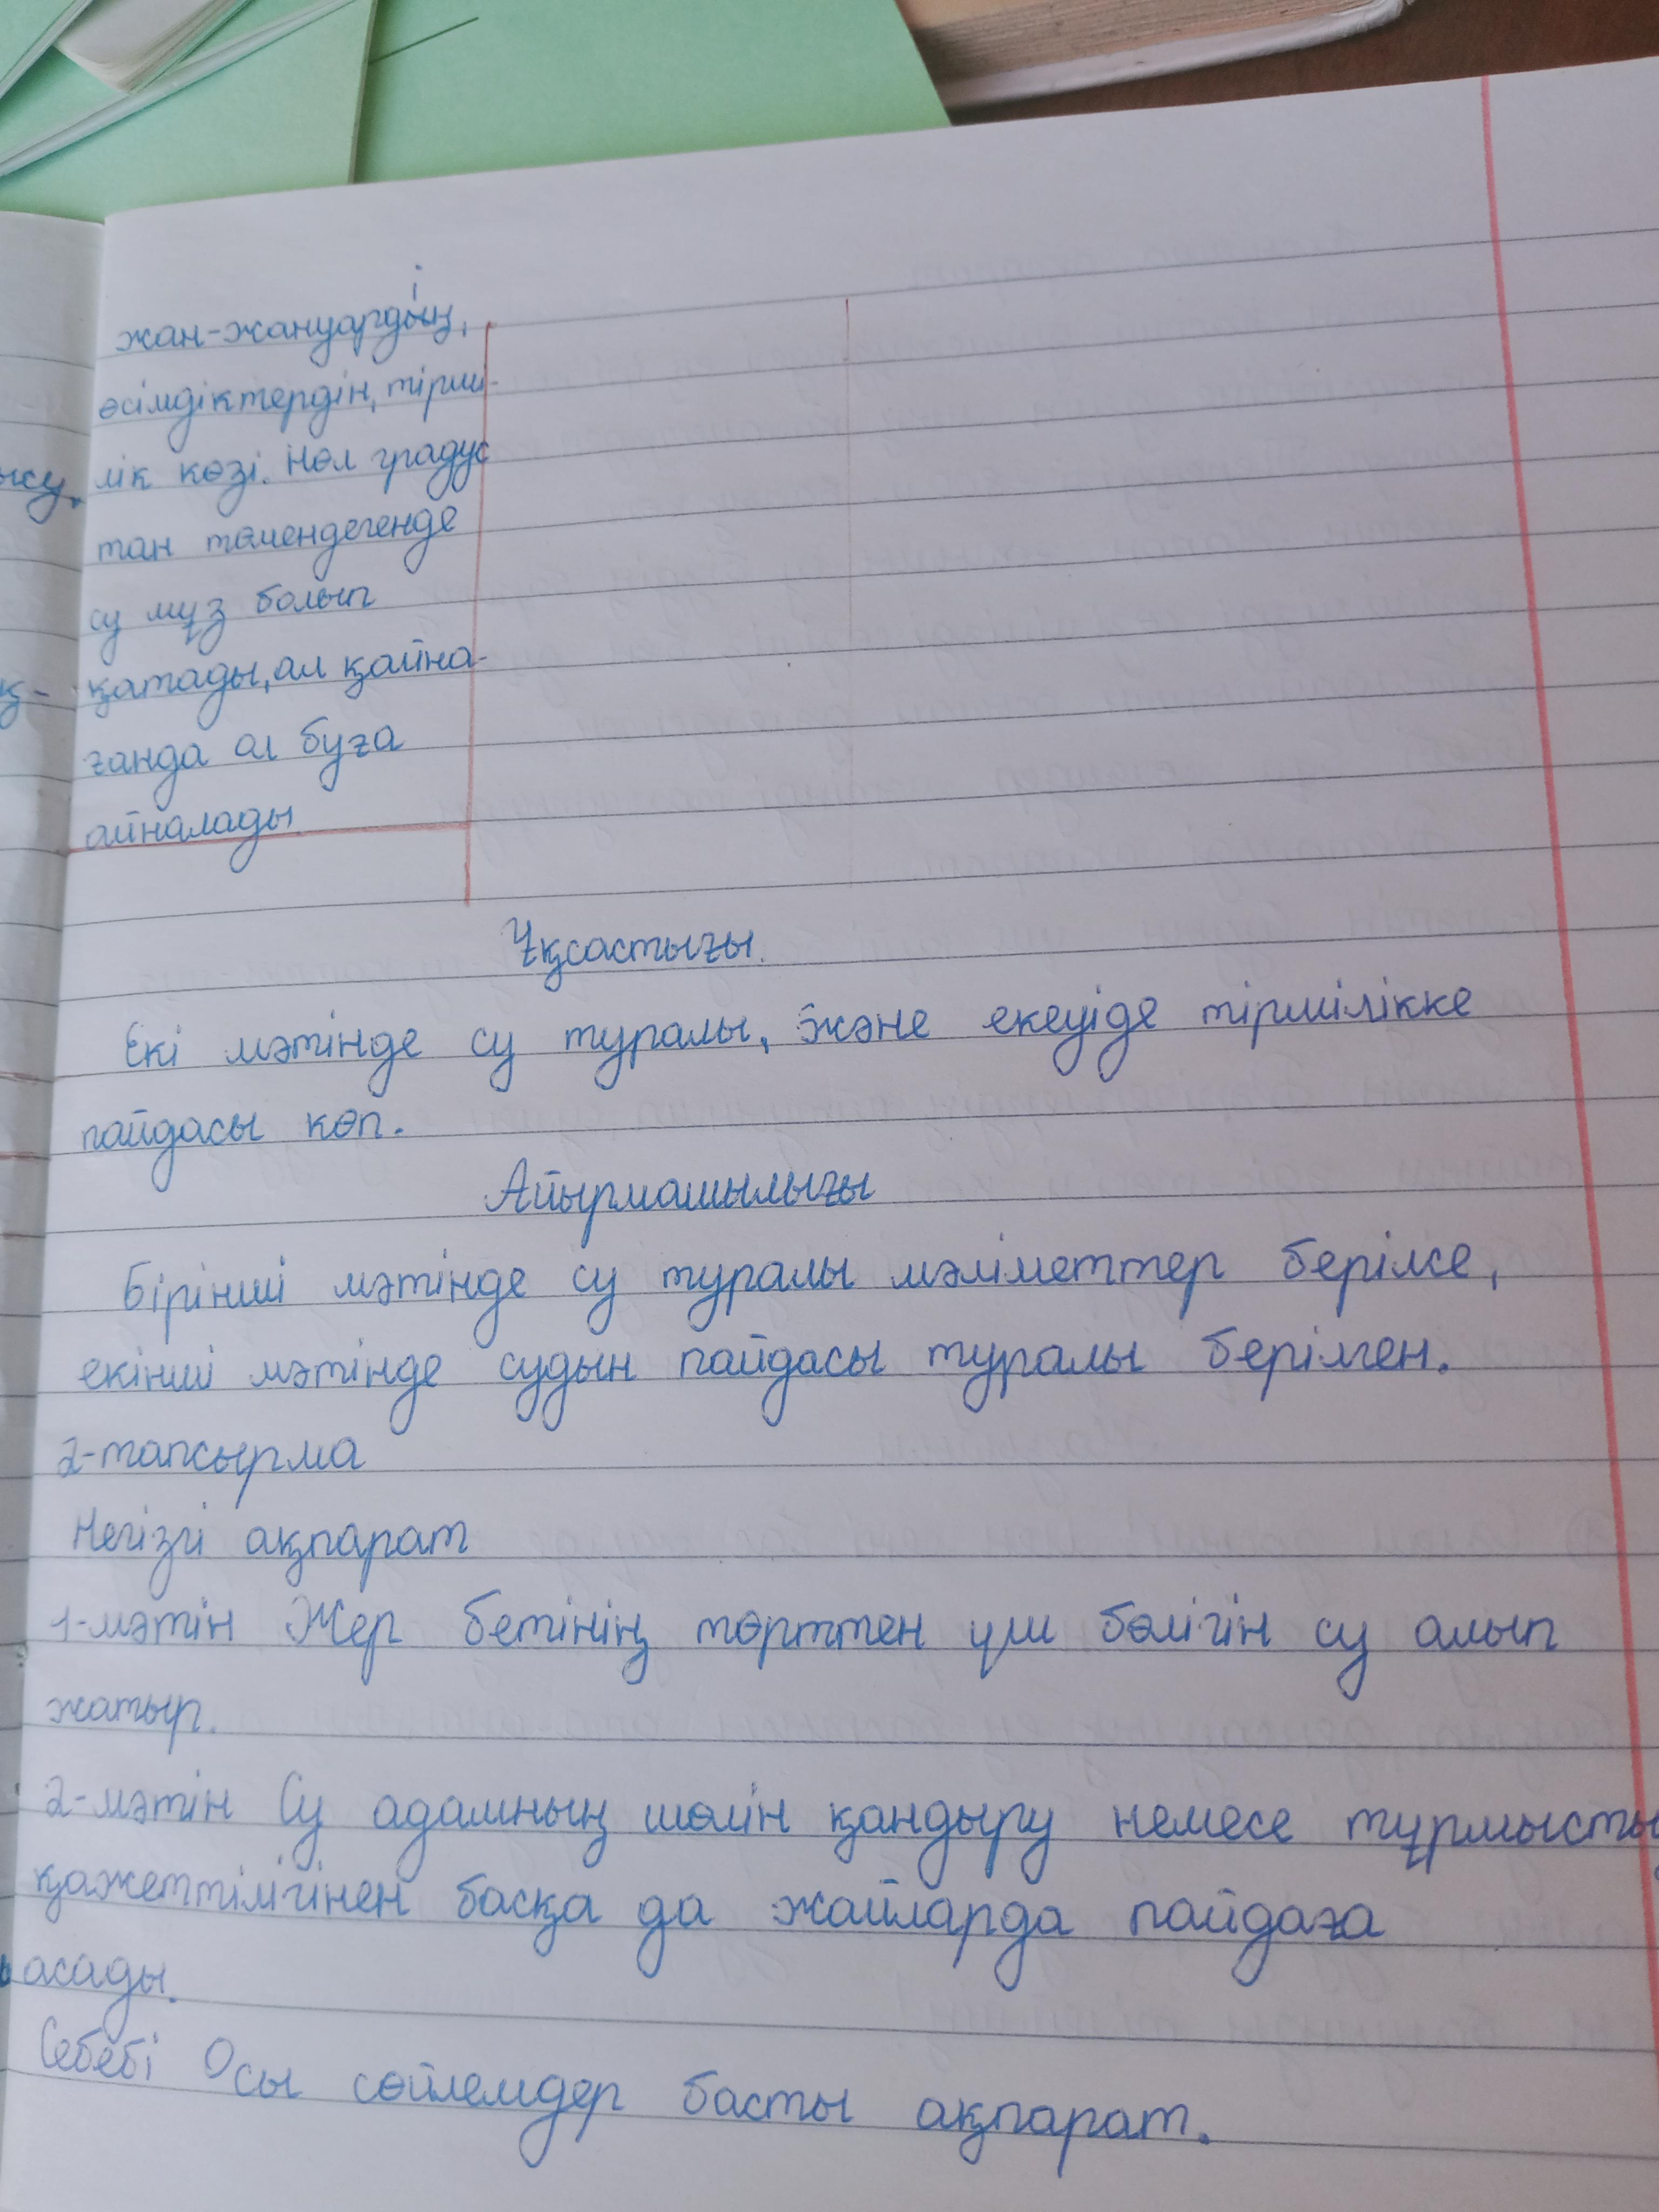 жан-жануардың,
өсімдіктердін, тірші-
лік көзі. Нөл градус
тан төмендегенде
су мұз болып
қатады, ал қайна-
ғанда ол буға
айналады.
Ұқсастығы.
Екі мәтінде су туралы, және екеуіде тіршілікке
пайдасы көп.
Айырмашылығы
Бірінші мәтінде су туралы мәліметтер берілсе,
екінші мәтінде судын пайдасы туралы берілген.
2-тапсырма
Негізгі ақпарат
1-мәтін Жер бетінің төрттен үш бөлігін су алып
жатыр.
2-мәтін Су адамның шөлін қандыру немесе тұрмысты
қажеттілігінен басқа да жайларда пайдаға
асады.
Себебі Осы сөйлемдер басты ақпарат.